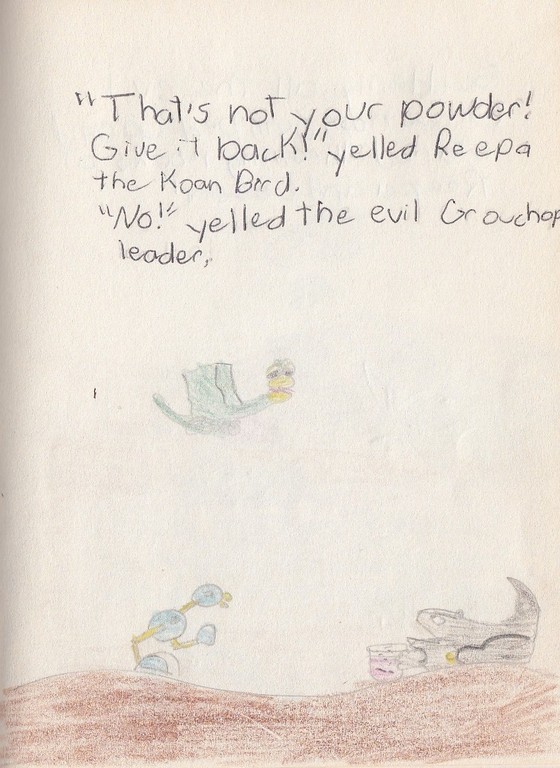 "That's not your powder!
Give it back!" yelled Reepa
the Koan Bird.
"No!" yelled the evil Grouchop
leader,